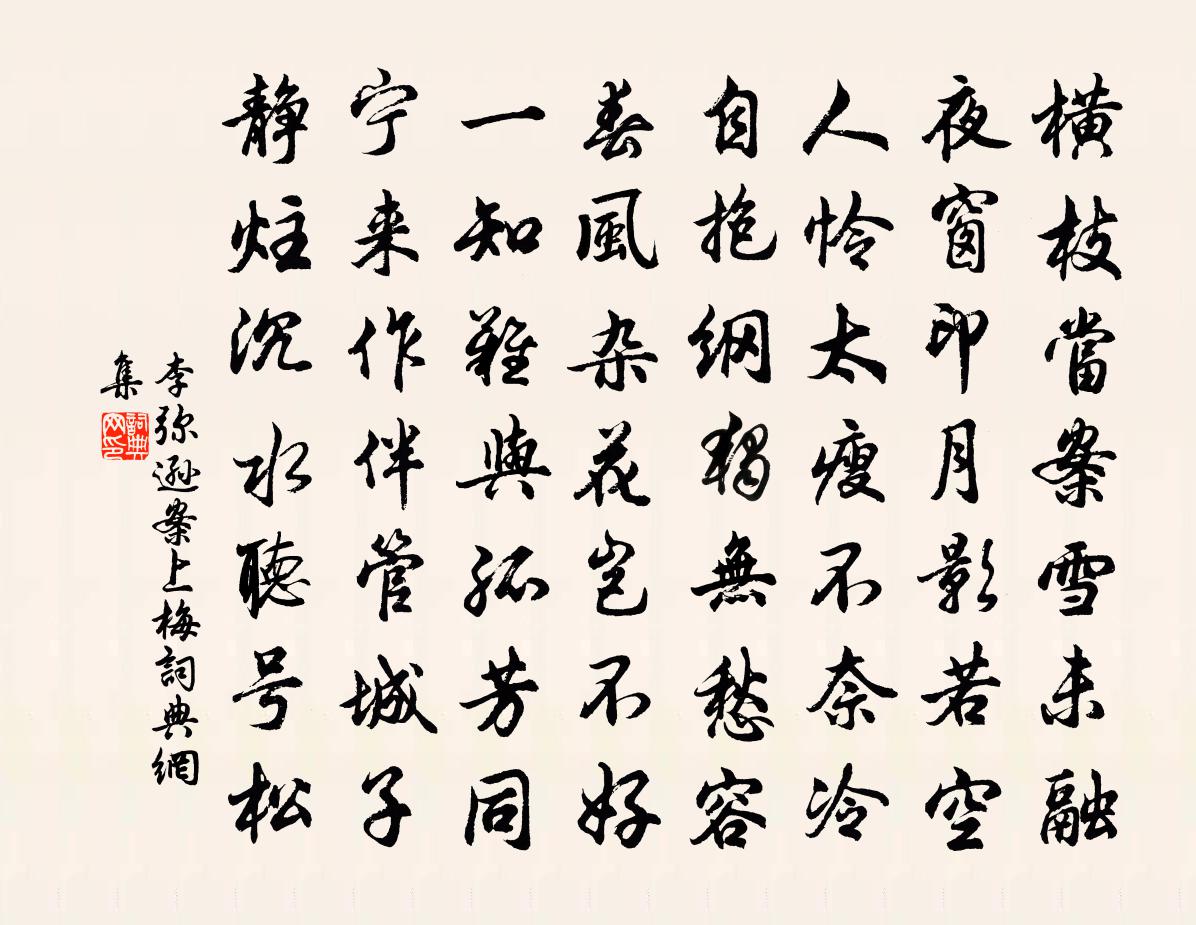 橫枝當案雪未融
夜窗印月影若空
人怜太瘦不奈冷
自抱綱獨無愁容
春風杂花岂不好
一知難與孤芳同
宁来作伴管城子
静炷沉水聽号松
李弥遜案上梅詞典網
集
詞典网印